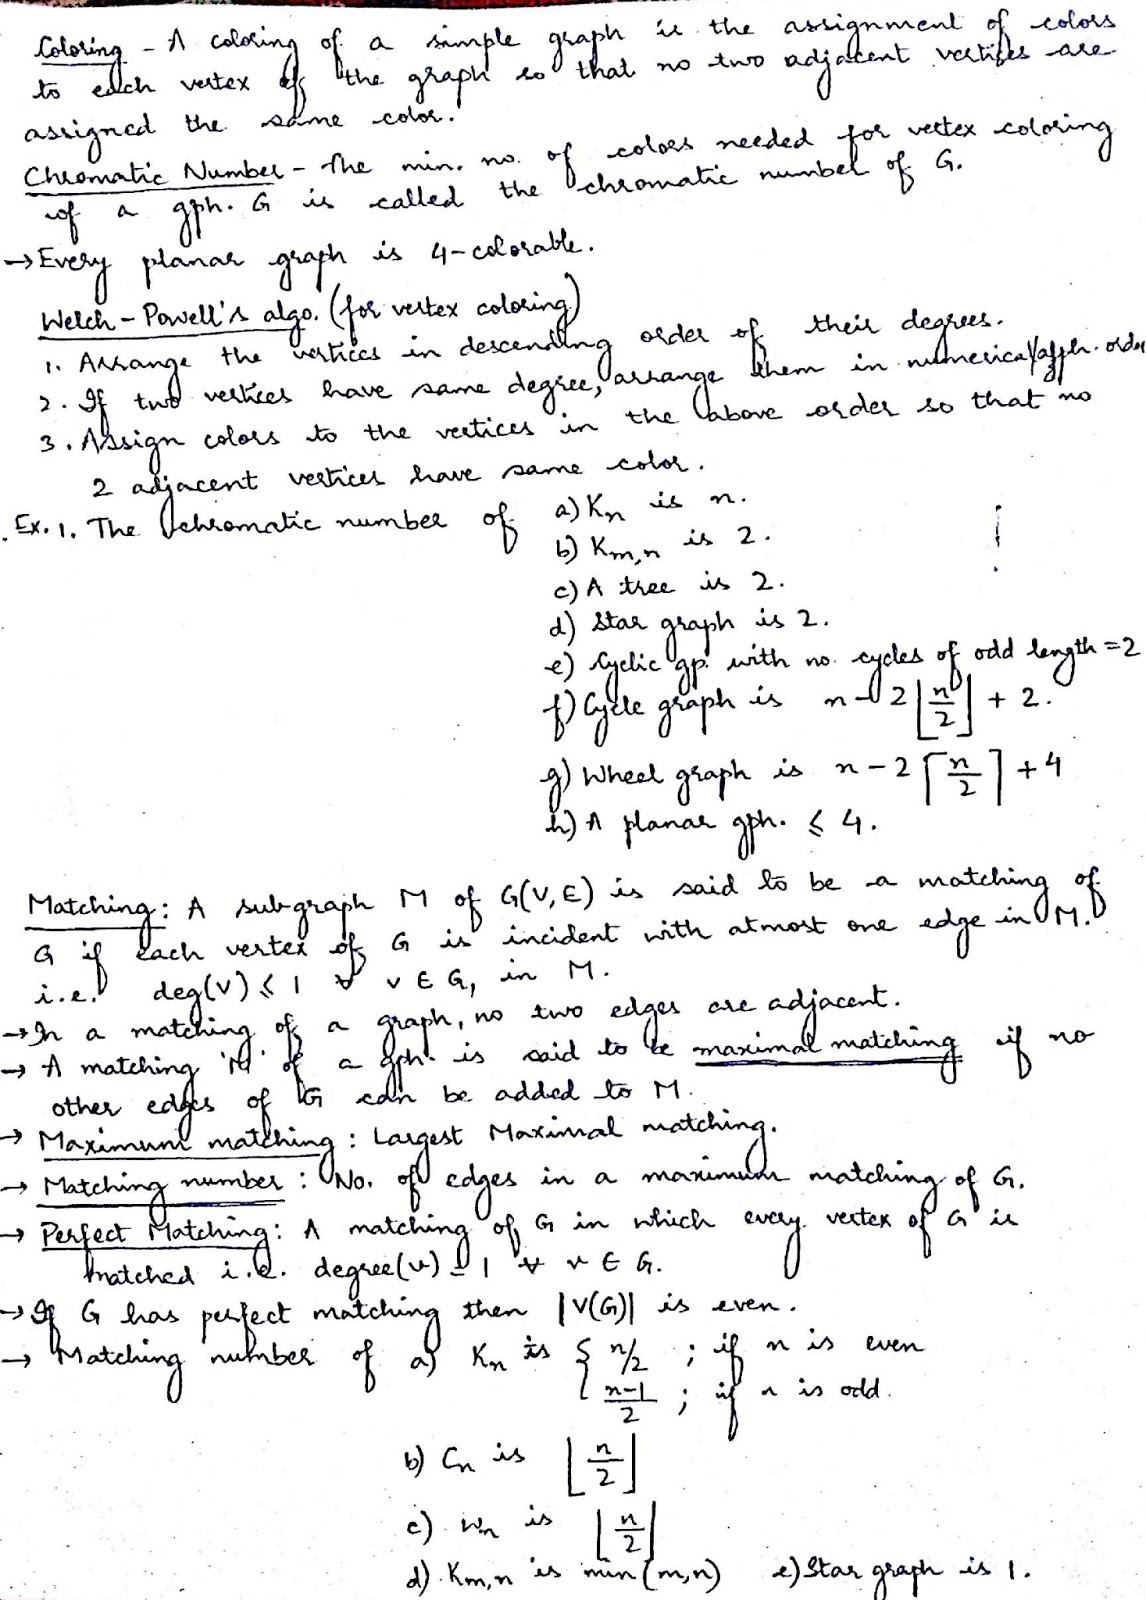 Coloring - A coloring of a simple graph is the assignment of colors
to each vertex of the graph so that no two adjacent vertices are
assigned the same color.
Chromatic Number - The min. no. of colors needed for vertex coloring
of a gph. G is called the chromatic number of G.
→ Every planar graph is 4-colorable.
Welch-Powell's algo. (for vertex coloring)
1. Arrange the vertices in descending order of their degrees.
2. If two vertices have same degree, arrange them in numerical/alph. order
3. Assign colors to the vertices in the above order so that no
2 adjacent vertices have same color.
Ex. 1. The chromatic number of a) Kn is n.
b) Km,n is 2.
c) A tree is 2.
d) Star graph is 2.
e) Cyclic gp. with no. cycles of odd length = 2
f) Cycle graph is n - 2⌊n/2⌋ + 2.
g) Wheel graph is n - 2⌈n/2⌉ + 4
h) A planar gph. ≤ 4.
Matching: A subgraph M of G(V,E) is said to be a matching of
G if each vertex of G is incident with atmost one edge in M.
i.e. deg(V) ≤ 1 ∀ v ∈ G, in M.
→ In a matching of a graph, no two edges are adjacent.
→ A matching 'M' of a gph. is said to be maximal matching if no
other edges of G can be added to M.
→ Maximum matching: Largest Maximal matching.
→ Matching number: No. of edges in a maximum matching of G.
→ Perfect Matching: A matching of G in which every vertex of G is
matched i.e. degree(v) = 1 ∀ v ∈ G.
→ If G has perfect matching then |V(G)| is even.
→ Matching number of a) Kn is { n/2 ; if n is even
n-1/2 ; if n is odd.
b) Cn is ⌊n/2⌋
c) Wn is ⌊n/2⌋
d) Km,n is min(m,n) e) Star graph is 1.